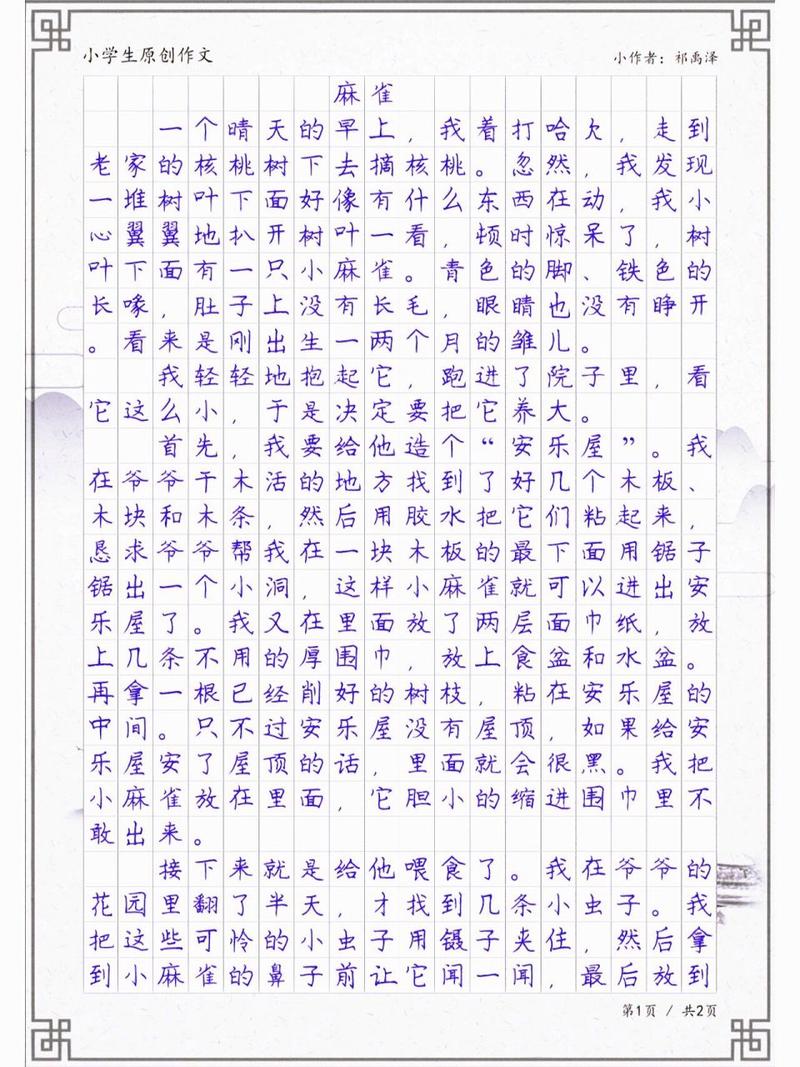 小学生原创作文
小作者：祁禹泽
麻雀
一个晴天的早上，我着打哈欠，走到
老家的核桃树下去摘核桃。忽然，我发现
一堆树叶下面好像有什么东西在动，我小
心翼翼地扒开树叶一看，顿时惊呆了，树
叶下面有一只小麻雀。青色的脚、铁色的
长喙，肚子上没有长毛，眼睛也没有睁开
。看来是刚出生一两个月的雏儿。
我轻轻地抱起它，跑进了院子里，看
它这么小，于是决定要把它养大。
首先，我要给他造个“安乐屋”。我
在爷爷干木活的地方找到了好几个木板、
木块和木条，然后用胶水把它们粘起来，
恳求爷爷帮我在一块木板的最下面用锯子
锯出一个小洞，这样小麻雀就可以进出安
乐屋了。我又在里面放了两层面巾纸，放
上几条不用的厚围巾，放上食盆和水盆。
再拿一根已经削好的树枝，粘在安乐屋的
中间。只不过安乐屋没有屋顶，如果给安
乐屋安了屋顶的话，里面就会很黑。我把
小麻雀放在里面，它胆小的缩进围巾里不
敢出来。
接下来就是给他喂食了。我在爷爷的
花园里翻了半天，才找到几条小虫子。我
把这些可怜的小虫子用镊子夹住，然后拿
到小麻雀的鼻子前让它闻一闻，最后放到
第1页 / 共2页